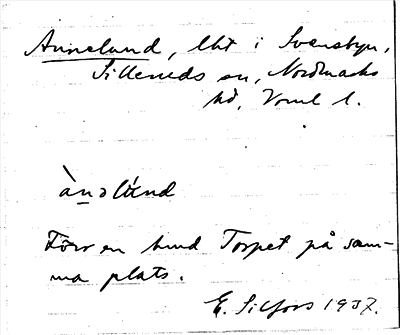 Annelund, lht i Svensbyn,
Silleruds sn, Nordmarks
hd, Vrml l.
ànəlúnd
Förr en hund Torpet på sam-
ma plats.
E. Silfors 1937.